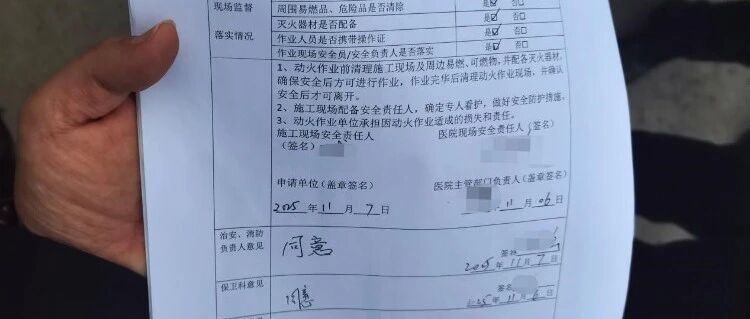 现场监督
落实情况
周围易燃品、危险品是否清除 是☑ 否□
灭火器材是否配备 是☑ 否□
作业人员是否携带操作证 是☑ 否□
作业现场安全员/安全负责人是否落实 是☑ 否□
1、动火作业前清理施工现场及周边易燃、可燃物，并配备灭火器材，
确保安全后方可进行作业，作业完毕后清理动火作业现场，并确认
安全后才可离开。
2、施工现场配备安全责任人，确定专人看护，做好安全防护措施。
3、动火作业单位承担因动火作业造成的损失和责任。
施工现场安全责任人 医院现场安全责任人（签名）
（签名）
申请单位（盖章签名） 医院主管部门负责人（盖章签名）
2025 年 11 月 7 日 11 月 06 日
治安、消防
负责人意见
同意
签名
2025 年 11 月 7 日
保卫科意见
同意
签名
2025 年 11 月 6 日